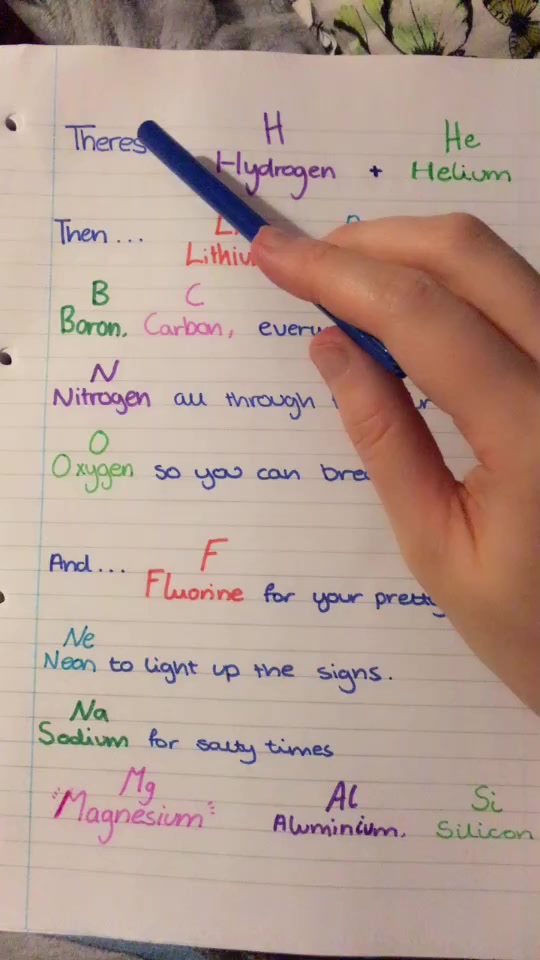 H He
Theres Hydrogen + Helium
Then...
B C
Boron, Carbon,
N
Nitrogen all through
O
Oxygen so you can
F
And... Fluorine for your pretty
Ne
Neon to light up the signs.
Na
Sodium for salty times
Mg Al Si
"Magnesium" Aluminium, Silicon